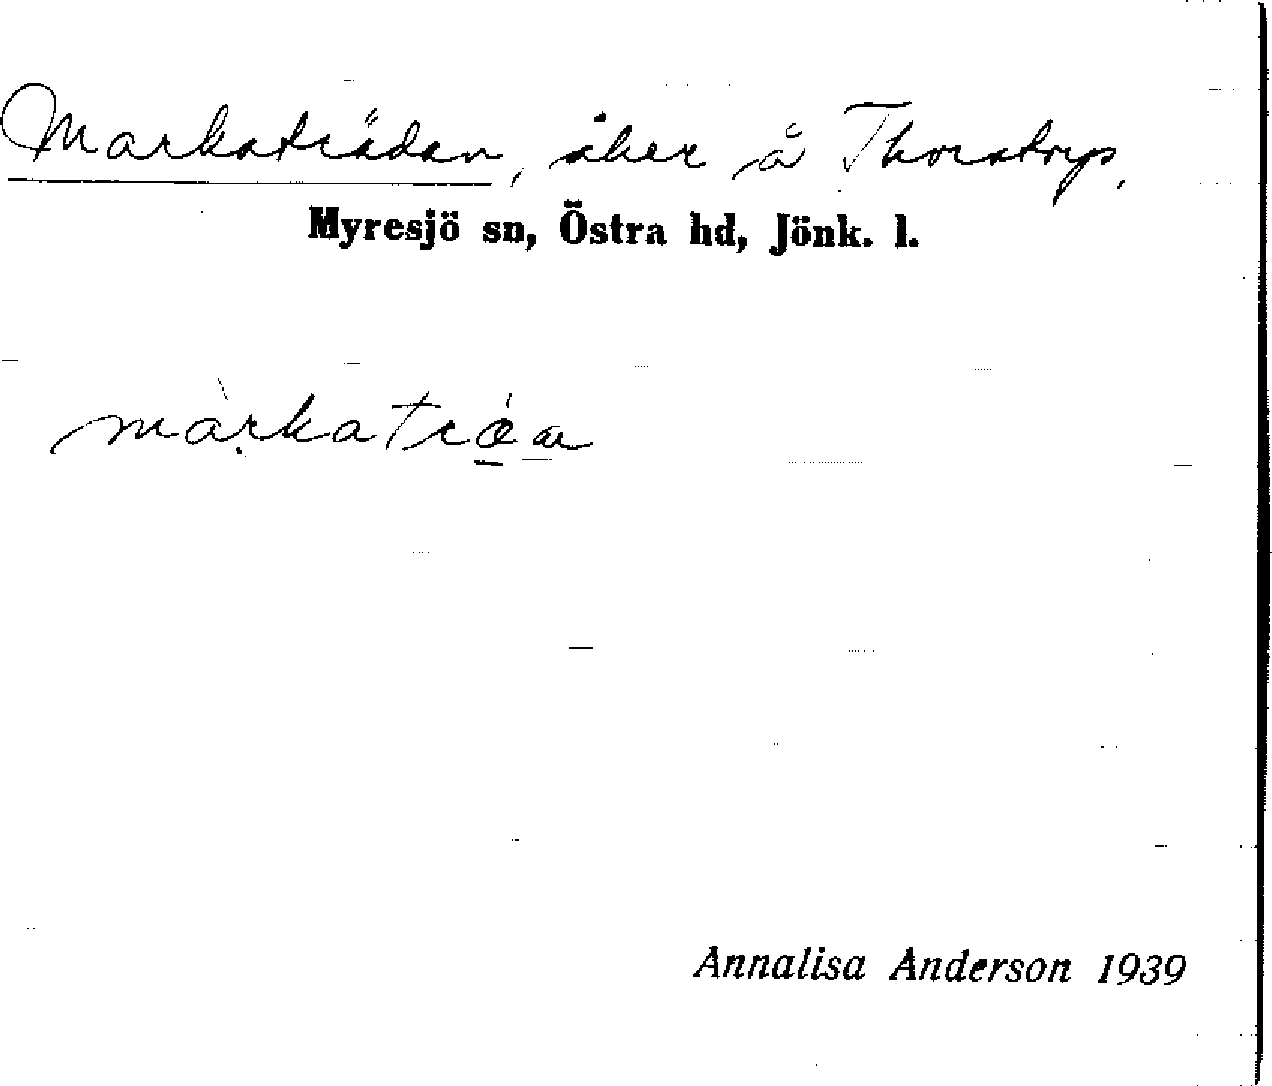 Markaträdan, åker å Thorstorp,
Myresjö sn, Östra hd, Jönk. l.
Annalisa Anderson 1939